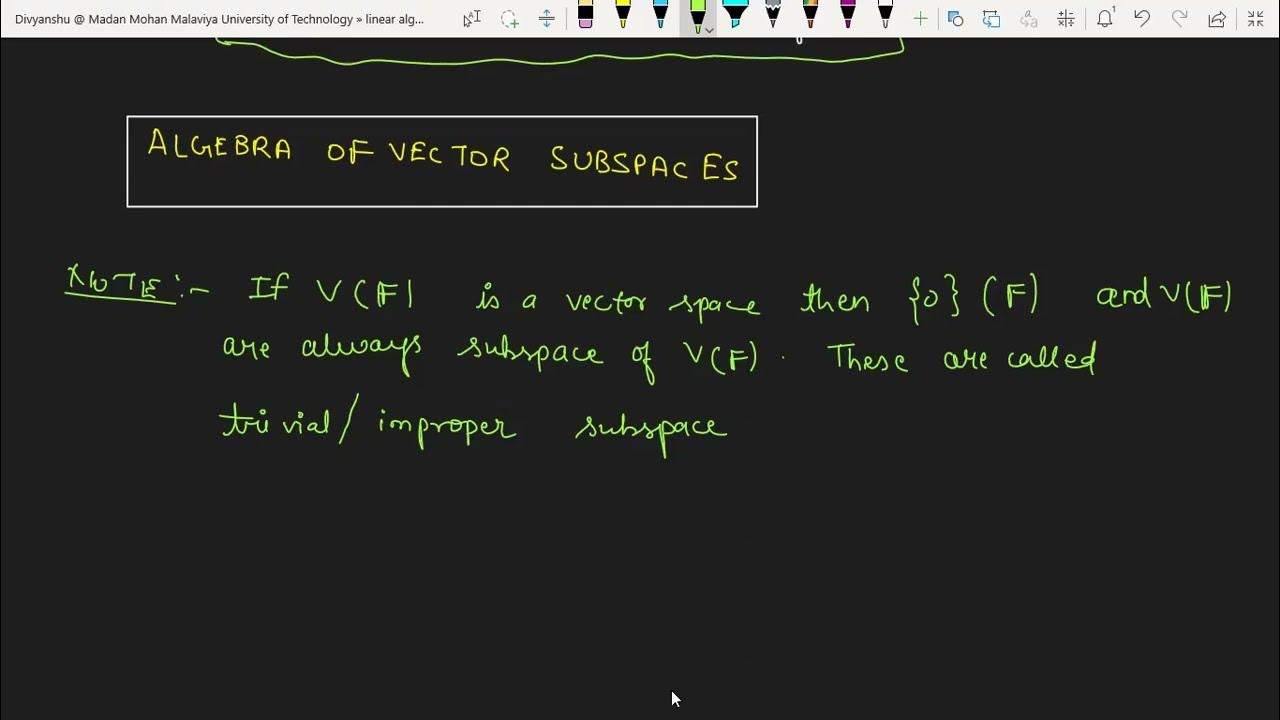 Divyanshu @ Madan Mohan Malaviya University of Technology » linear alg...
ALGEBRA OF VECTOR SUBSPACES
NOTE:- If V(F) is a vector space then {0} (F) and V(F)
are always subspace of V(F). These are called
trivial/improper subspace